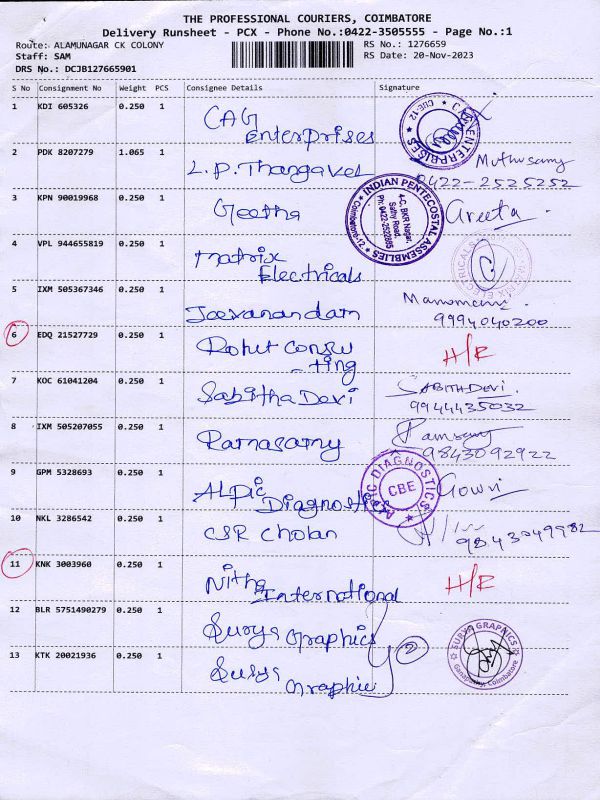 THE PROFESSIONAL COURIERS, COIMBATORE
Delivery Runsheet - PCX - Phone No.:0422-3505555 - Page No.:1
Route: ALAMUNAGAR CK COLONY
RS No.: 1276659
Staff: SAM
RS Date: 20-Nov-2023
DRS No.: DCJB127665901
S No Consignment No Weight PCS Consignee Details Signature
1 KDI 605326 0.250 1 CAG
enterprises
CUE-12
ENTERPRISES
2 PDK 8207279 1.065 1 L.P. Thangavel Muthusamy
0422-2525252
3 KPN 90019968 0.250 1 Geetha Greeta
INDIAN PENTECOSTAL ASSEMBLIES
4-C, BKR Nagar,
Sathy Road,
Ph: 0422-2522885
Coimbatore-12
4 VPL 944655819 0.250 1 Matrix
Electricals
5 IXM 505367346 0.250 1 Jeevanandam
9994040200
6 EDQ 21527729 0.250 1 Rohit Consu
-ting H/R
7 KOC 61041204 0.250 1 Sabitha Devi SABITHDEVI.
9944435032
8 IXM 505207055 0.250 1 Ramasamy Ramsamy
9843092922
9 GPM 5328693 0.250 1 ALPIC
Diagnostics Gowri
DIAGNOSTICS
CBE
10 NKL 3286542 0.250 1 CSR Cholan
9843049982
11 KNK 3003960 0.250 1 Nitha
International H/R
12 BLR 5751490279 0.250 1 Surya Graphics
2
13 KTK 20021936 0.250 1 Surya
Graphic
SURYA GRAPHICS
Ganapathy, Coimbatore